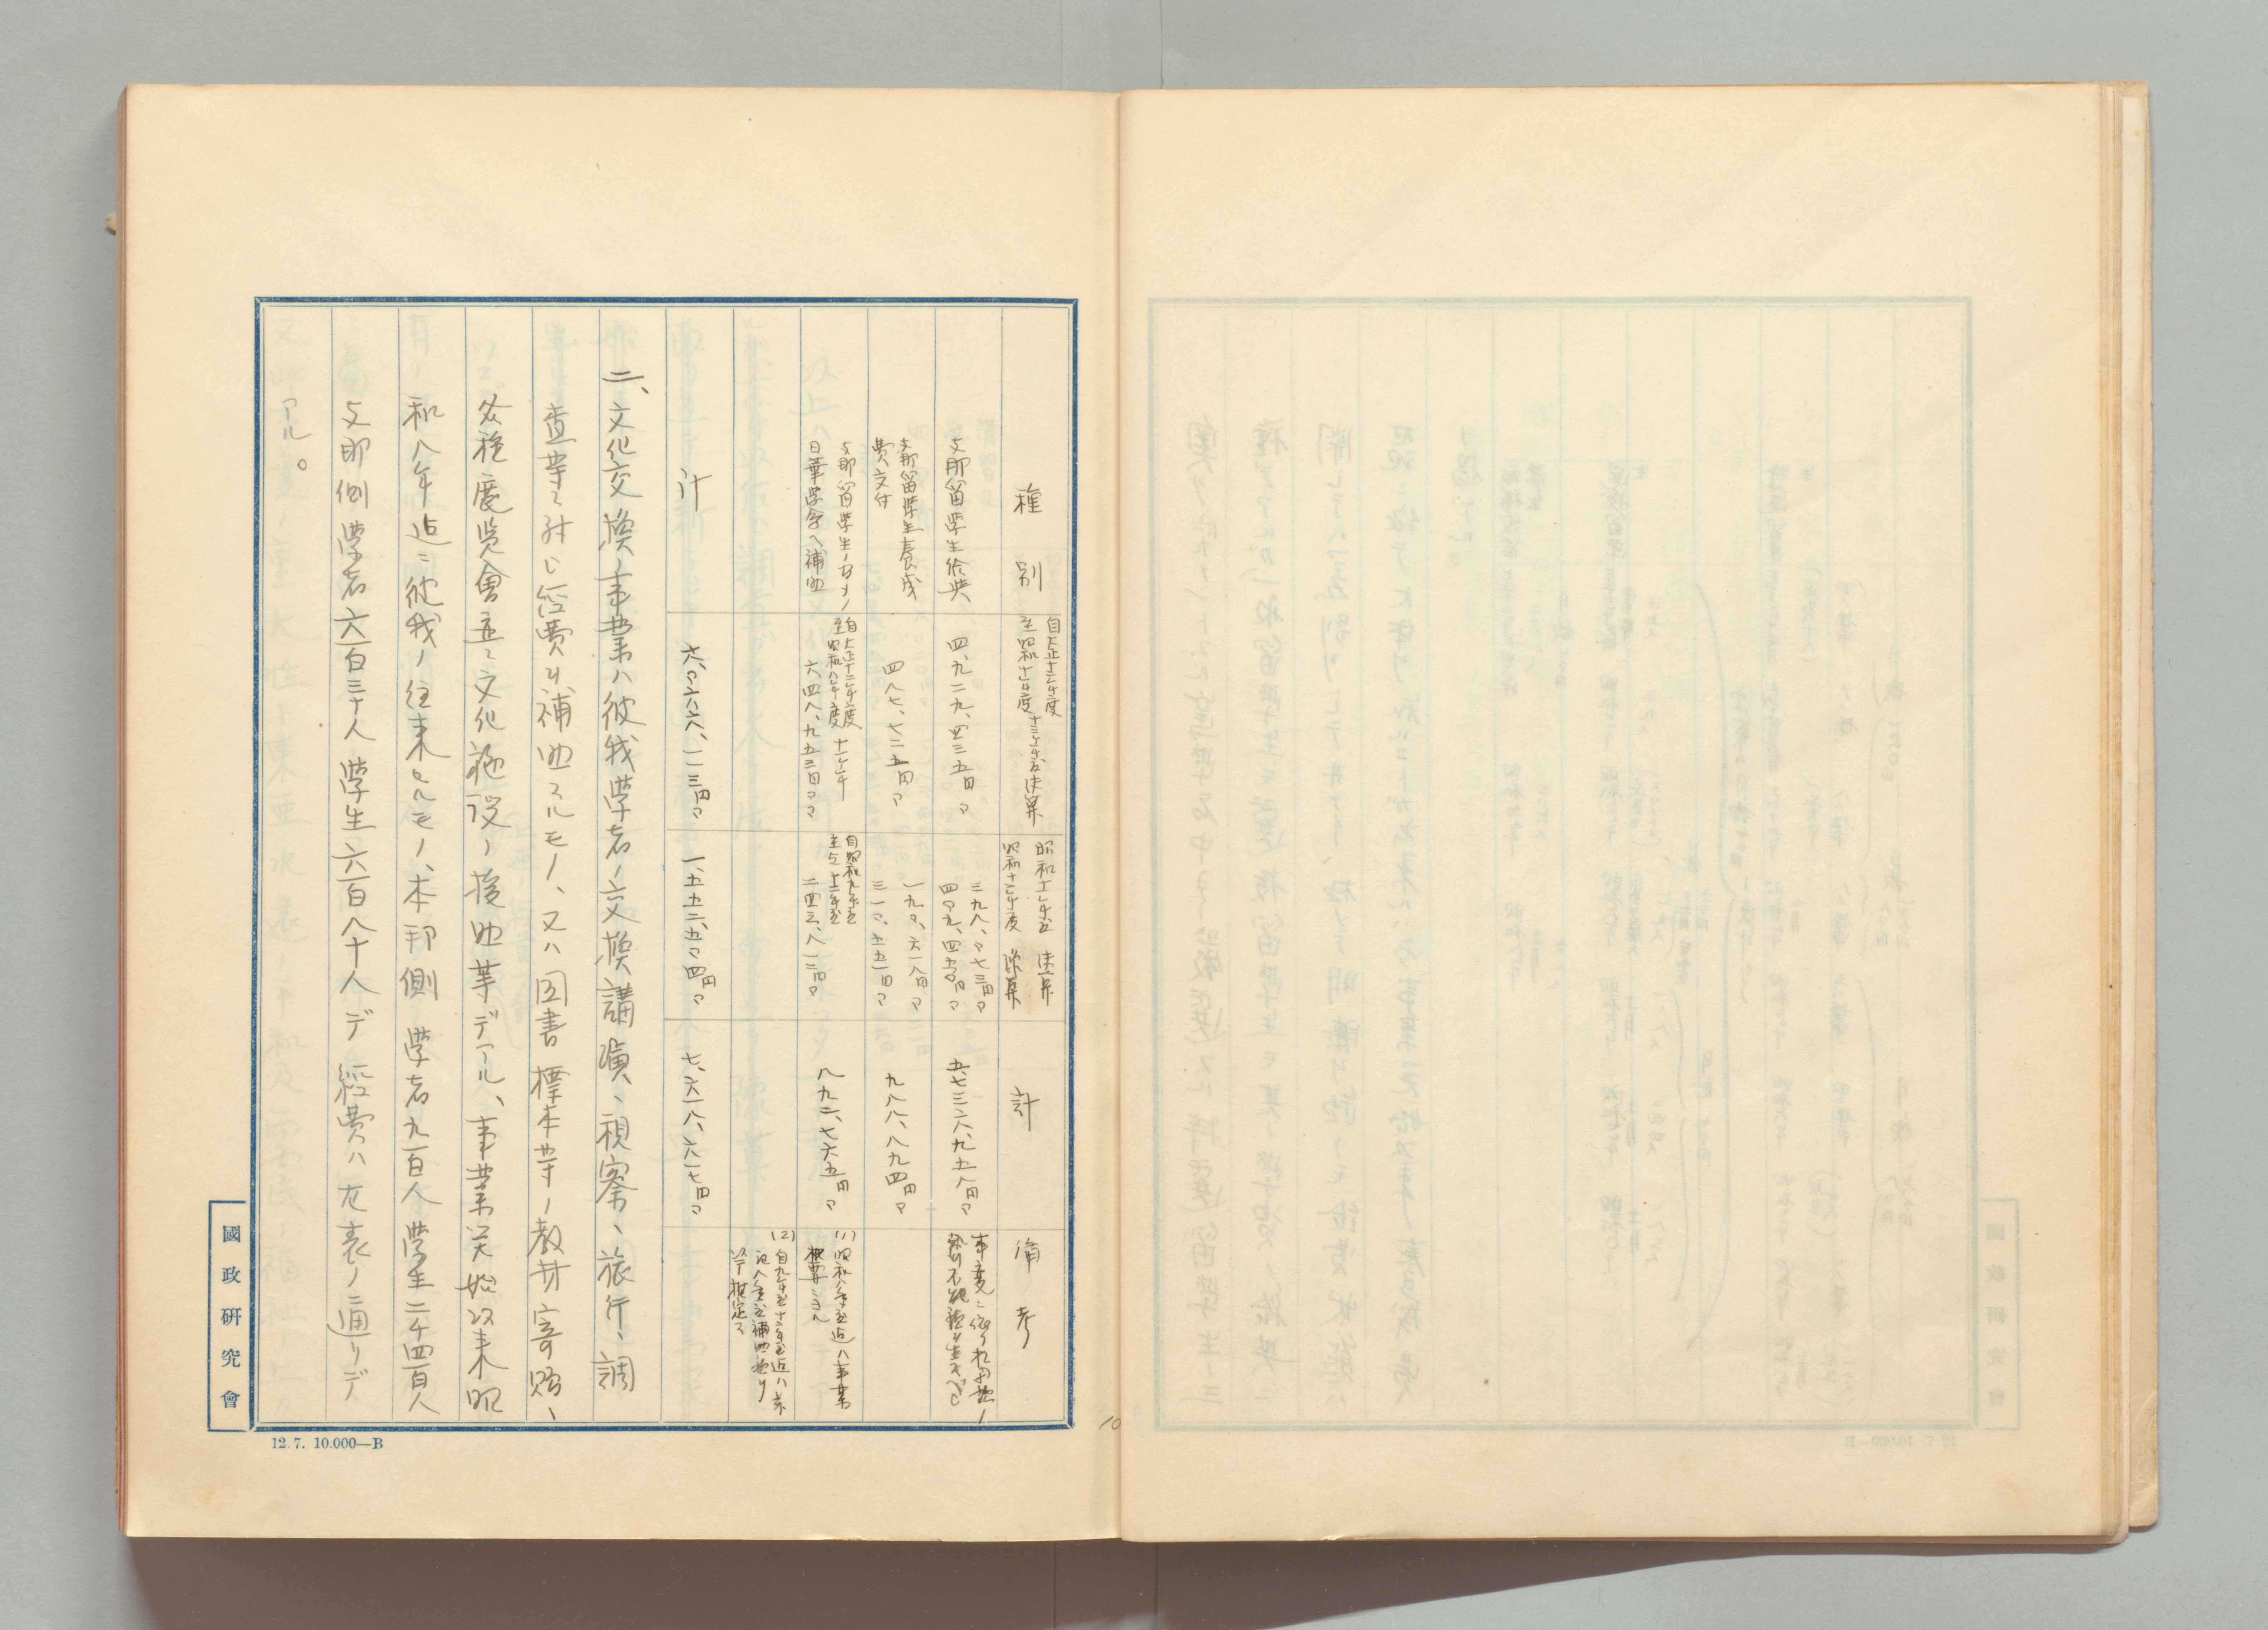 種別
自大正十二年度
至昭和十一年度 十三ヶ年度決算
昭和十一年度 決算
昭和十二年度 豫算
計
備考
支那留学生給与
四、九二九、四三五円〇
三九八、〇七三円〇
四〇九、四五〇円〇
五、七三六、九五八円〇
事変ニ依リ
支那留学生養成
費交付
四八七、七二五円〇
一九〇、六一八円〇
三一〇、五五一円〇
九八八、八九四円〇
支那留学生ノ為メノ
日華学会ヘ補助
自大正十二年度
至昭和八年度 十一ヶ年
六四八、九五三円〇〇
自昭和九年度
至〃十二年度
二四三、八一二円〇
八九二、七六五円〇
(1)昭和八年度迄ハ事業
概要ニヨル
(2)自九年度十二年度迄ハ
以テ推定ス
計
六、〇六六、一一三円〇
一、五五二、五〇四円〇
七、六一八、六一七円〇
二、文化交換ノ事業ハ彼我学者ノ交換講演、視察、旅行、調
査等ニ対し経費ヲ補助スルモノ、又ハ図書標本等ノ教材寄贈、
各種展覧會並ニ文化施設ノ援助等デアル、事業開始以来昭
和八年迄ニ彼我ノ往来セルモノ、本邦側 学者九百人 学生二千四百人
支那側学者六百三十人 学生六百八十人デ 経費ハ左表ノ通リデ
アル。
國政研究會
12.7. 10.000—B
10